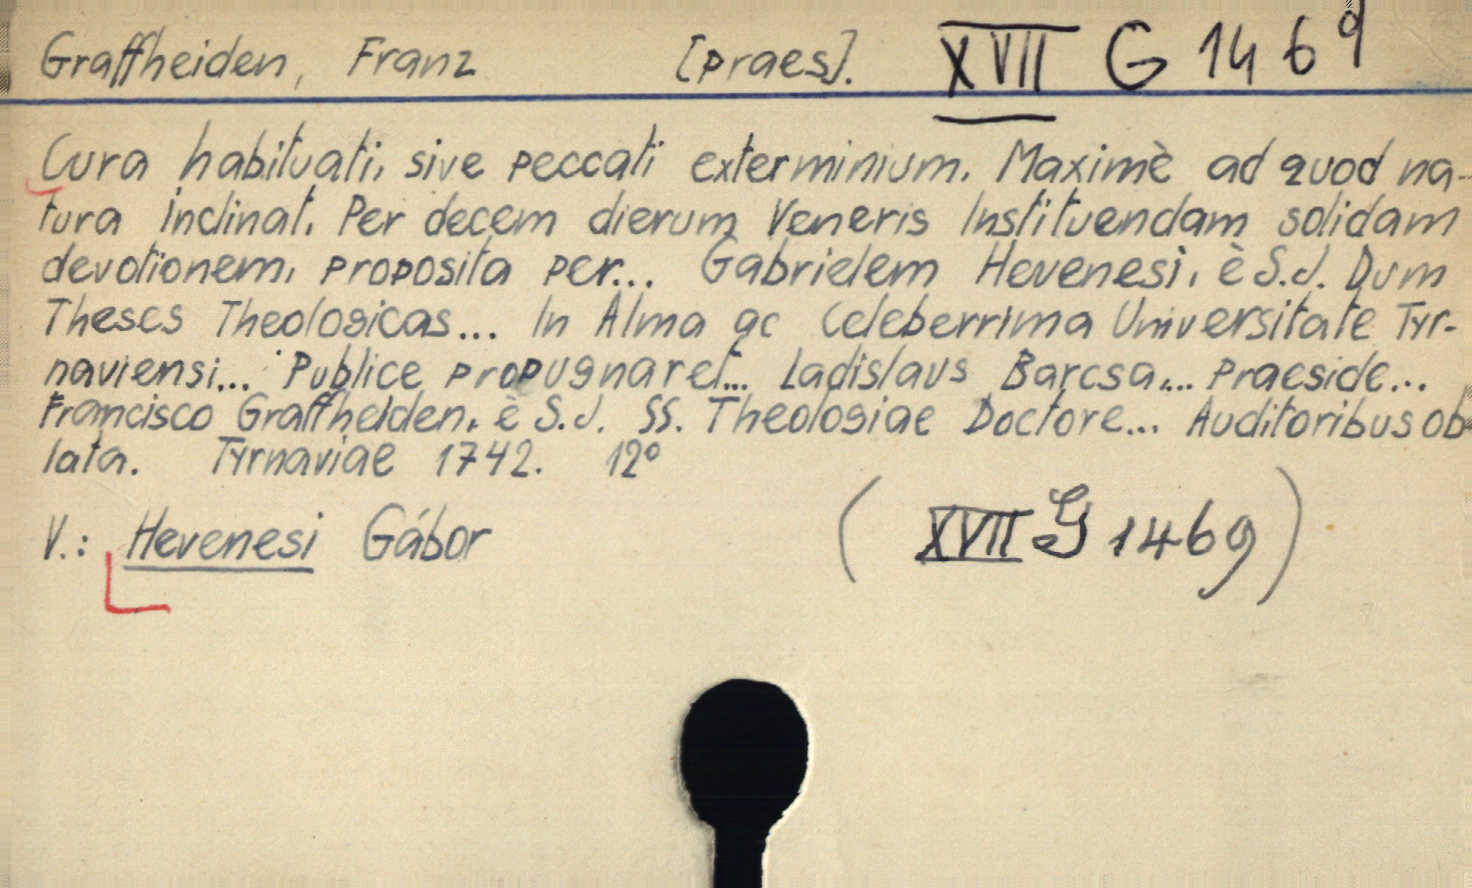 Graffheiden, Franz [praes]. XVII G 1469
Cura habituati, sive peccati exterminium. Maximè ad quod na-
tura inclinat. Per decem dierum Veneris Instituendam solidam
devotionem, proposita per... Gabrielem Hevenesi, è S.J. Dum
Theses Theologicas... In Alma ac Celeberrima Universitate Tyr-
naviensi... Publice propugnaret... Ladislaus Barcsa... Praeside...
Francisco Graffheiden. è S.J. SS. Theologiae Doctore... Auditoribus ob-
lata. Tyrnaviae 1742. 12°
V.: Hevenesi Gábor (XVII G 1469)